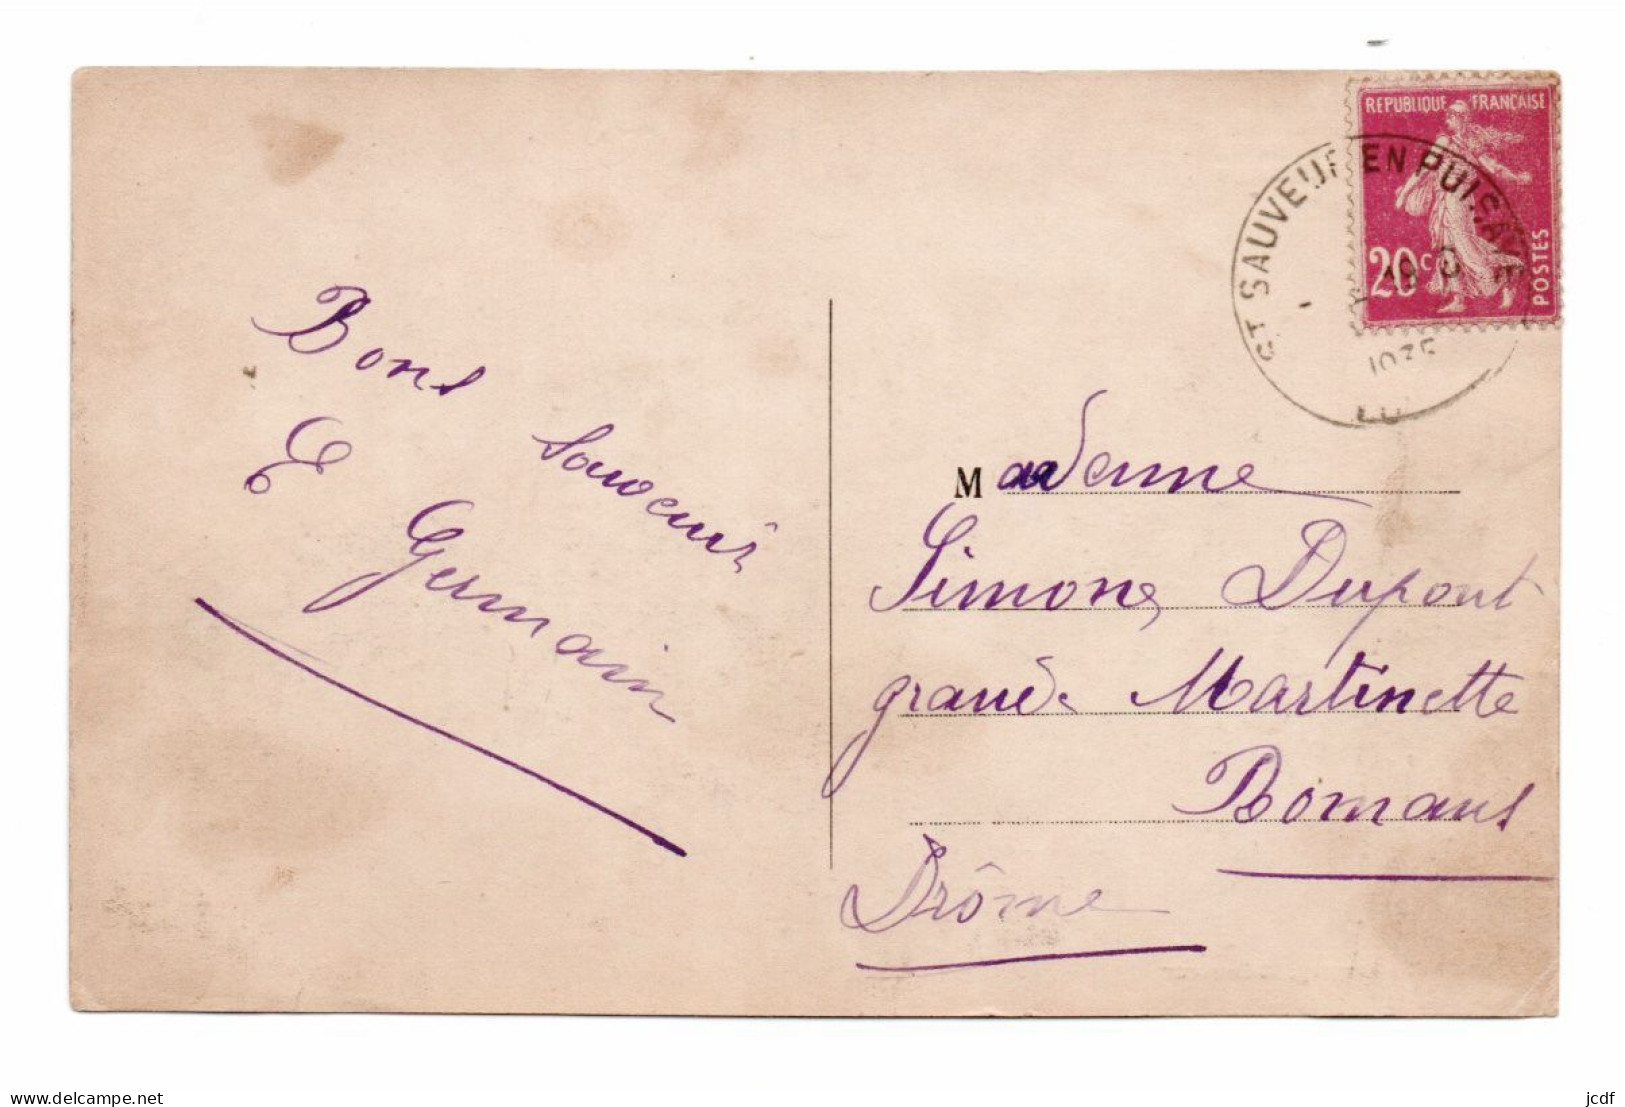 REPUBLIQUE FRANÇAISE
20c
POSTES
ST SAUVEUR EN PUISAYE
1935
Bons
souvenirs
E Germain
Madame
Simone Dupont
grande Martinette
Romans
Drôme
www.delcampe.net
jcdf